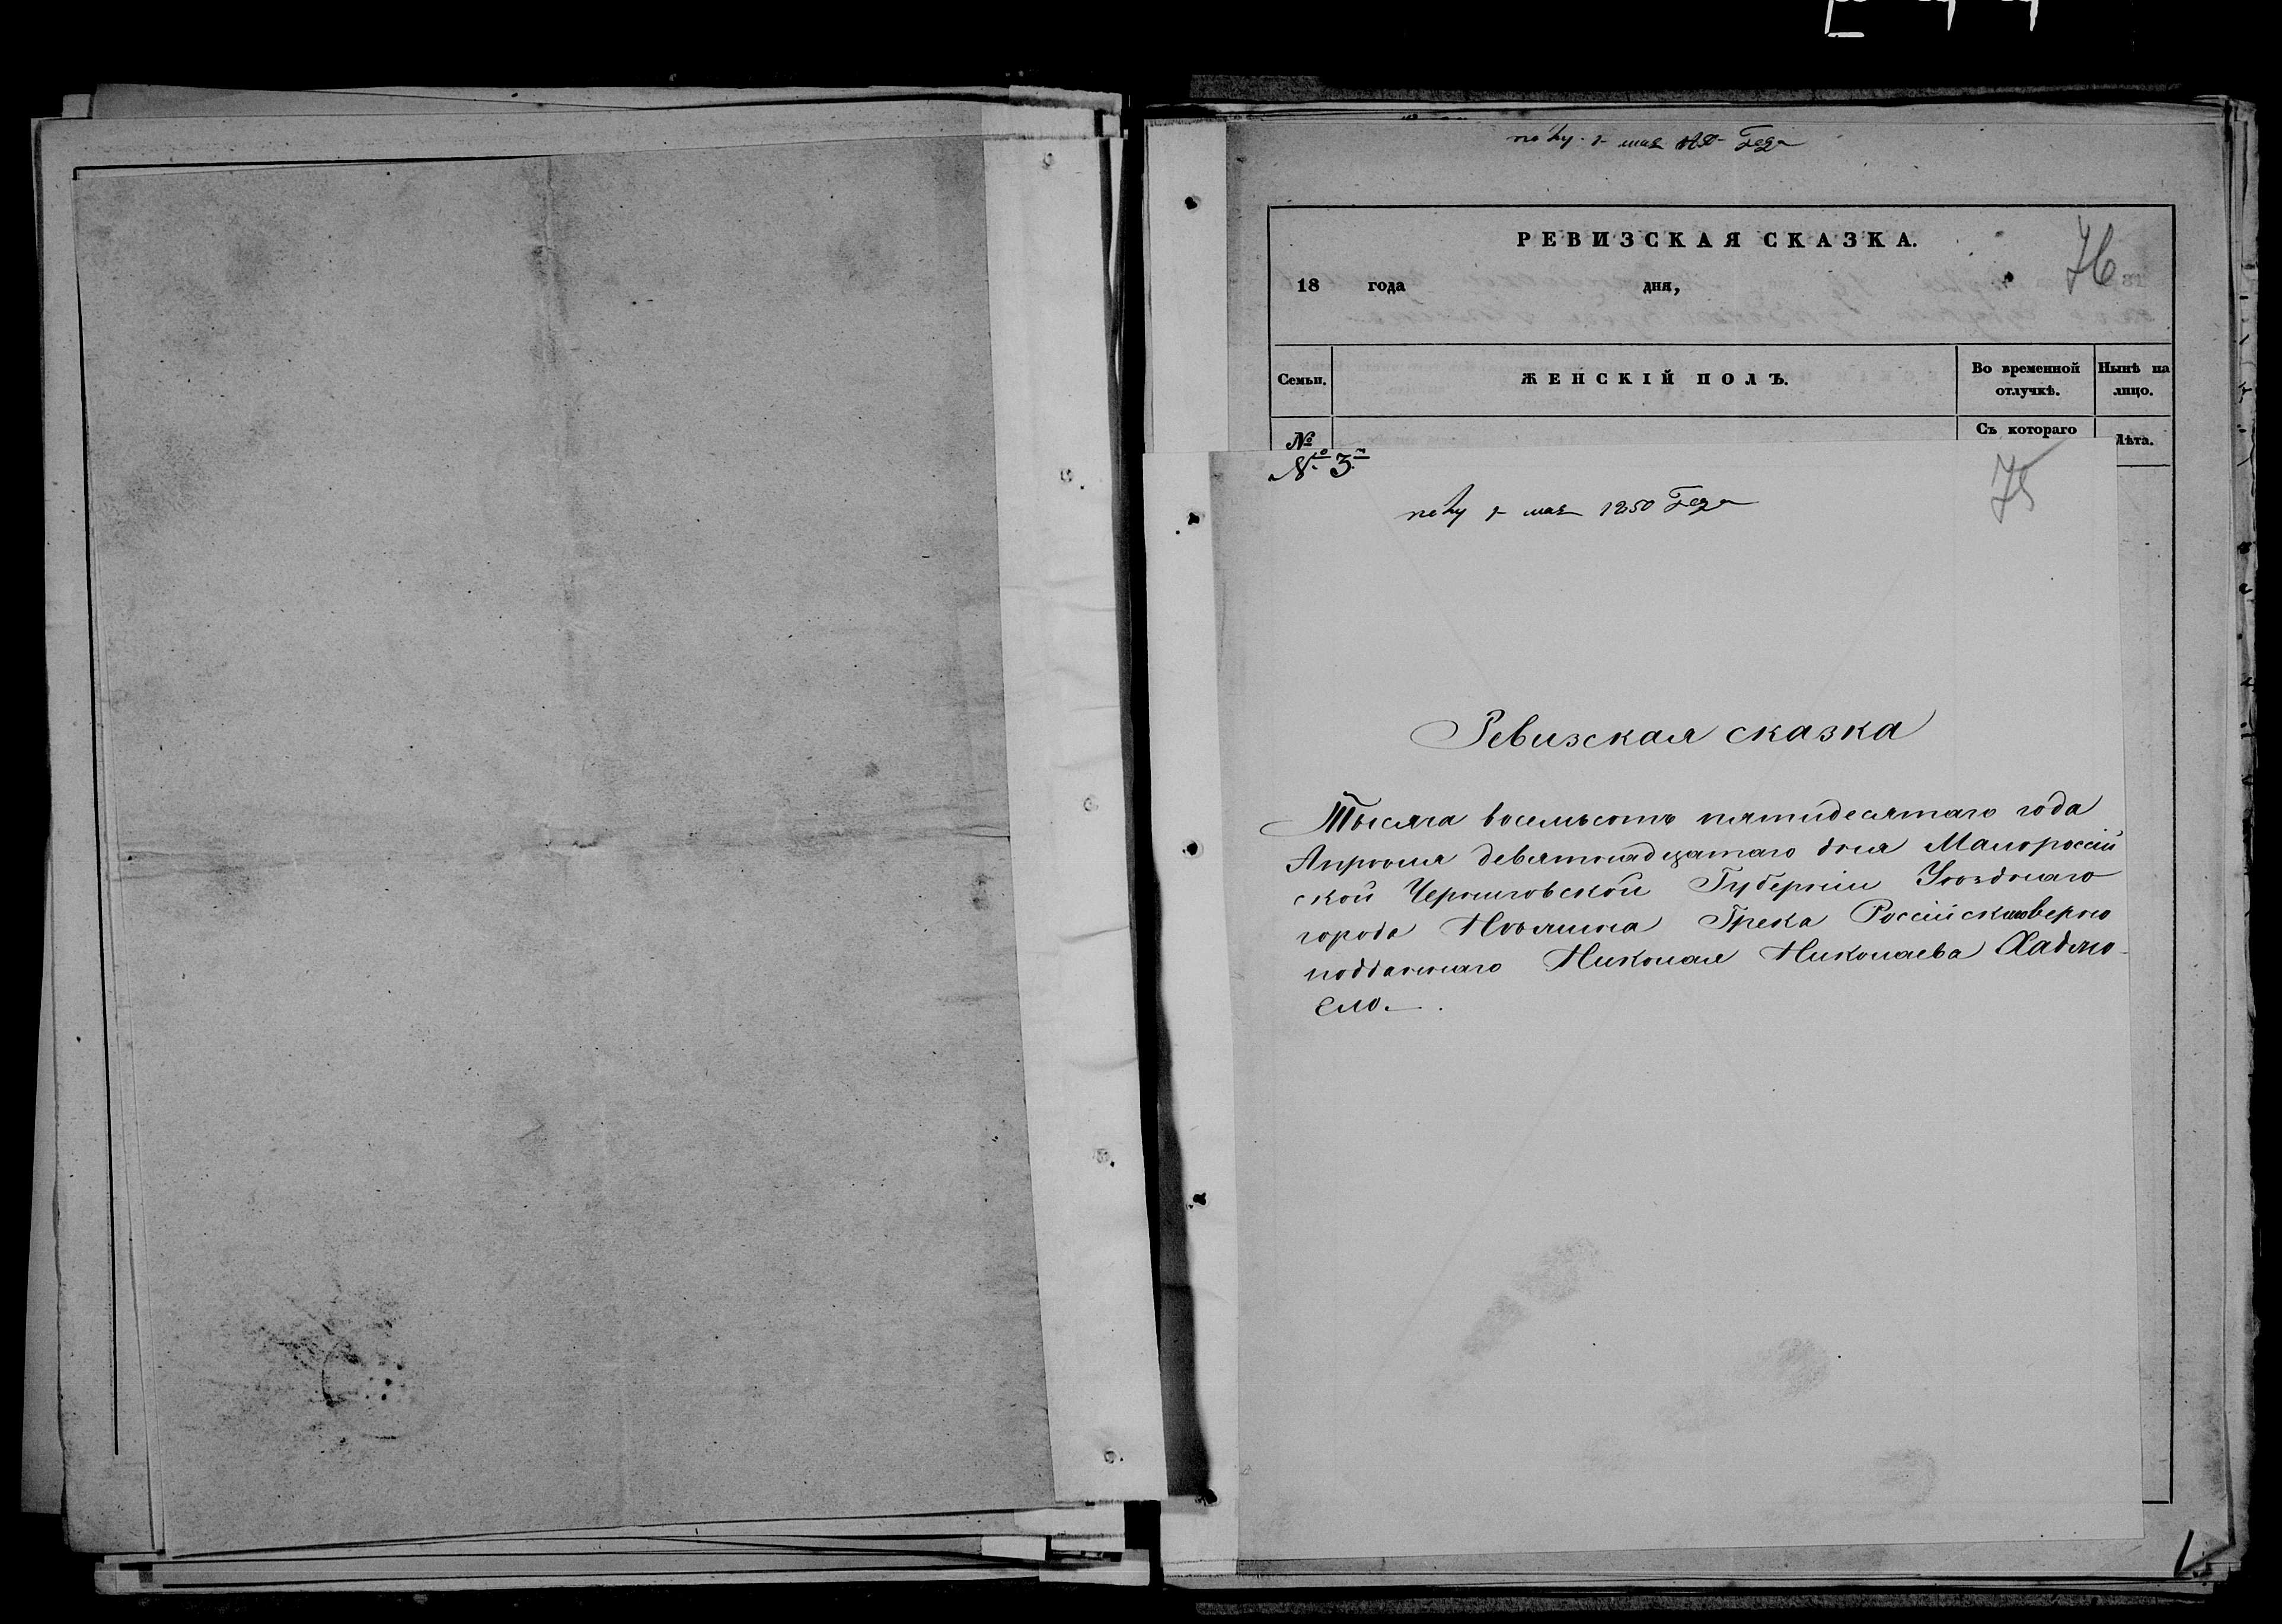 мая Года
РЕВИЗСКАЯ СКАЗКА.
76
18 года дня,
Семьи. ЖЕНСКІЙ ПОЛЪ. Во временной отлучкѣ. Нынѣ на лицо.
№ Съ котораго Лѣта.
№ 3
75
мая 1850 Года
Ревизская сказка
Тысяча восемьсотъ пятидесятаго года
Апрѣля девятнадцатаго дня Малороссій
ской Черниговской Губерніи Уѣзднаго
города Нѣжина Грека Россійско
подданнаго Николая Николаева